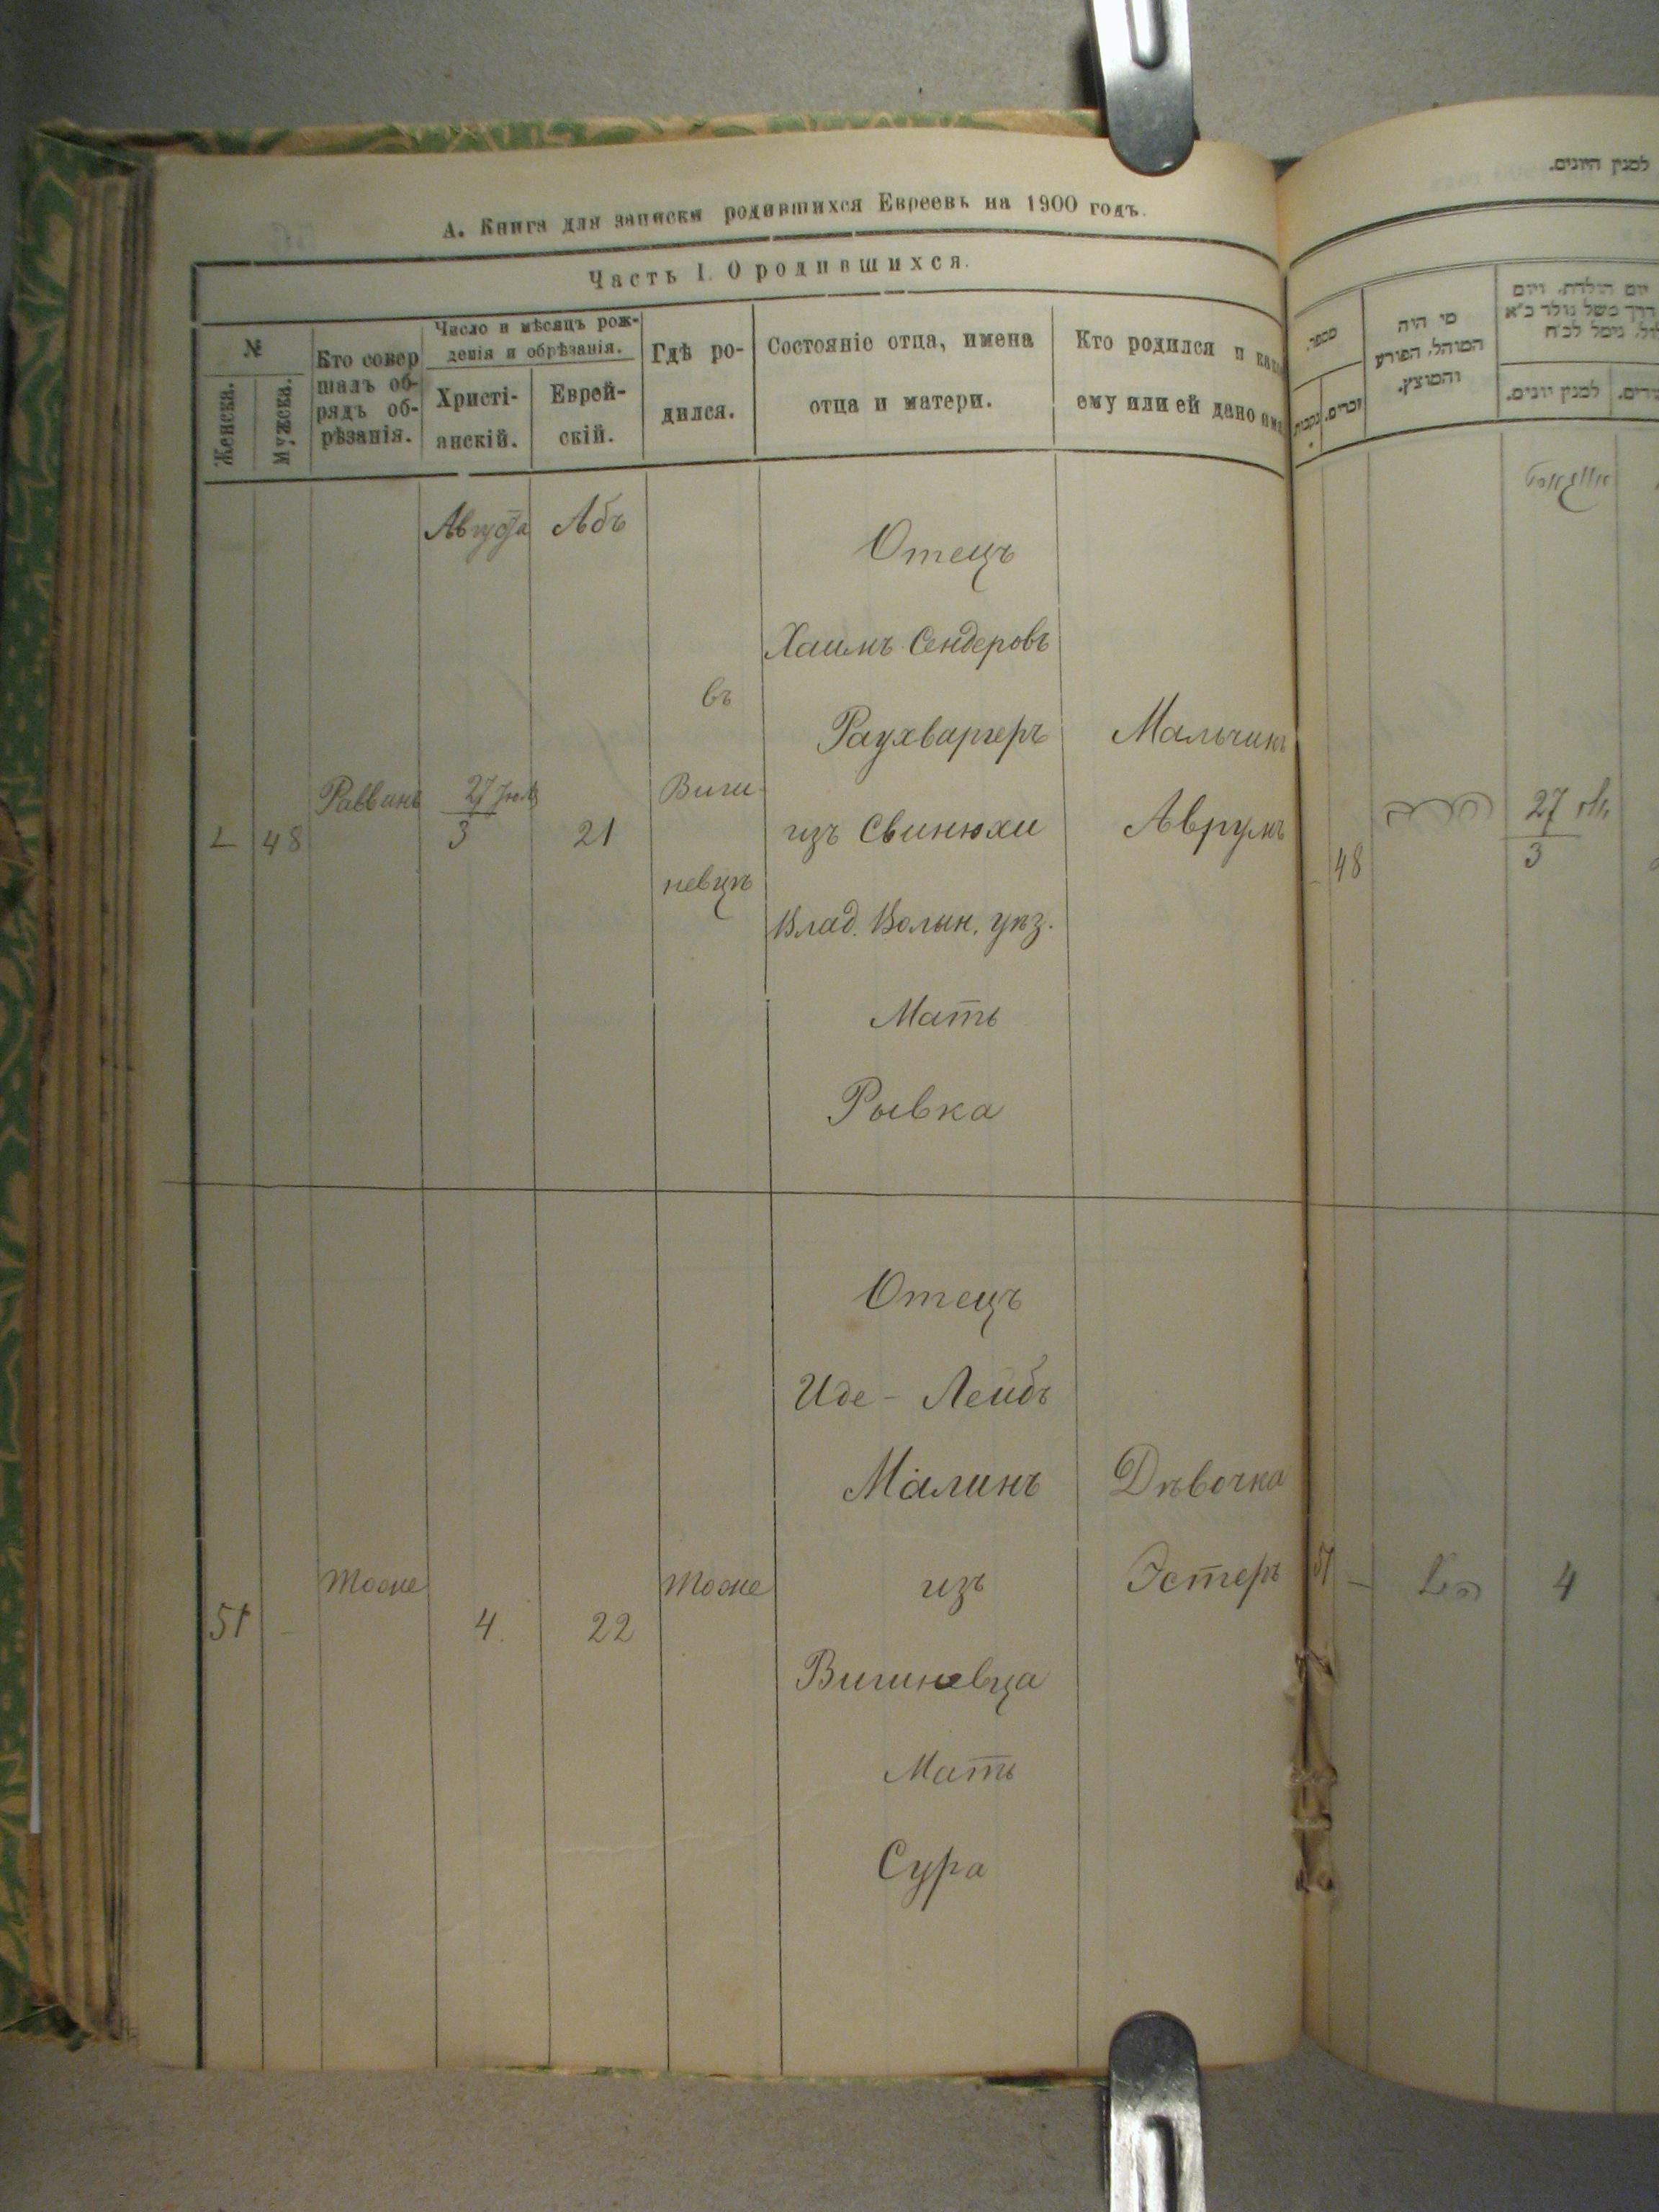 А. Книга для записки родившихся Евреевъ на 1900 годъ.
Часть I. О родившихся.
№
Женска.
Мужска.
Кто совер
шалъ об-
рядъ об-
рѣзанія.
Число и мѣсяцъ рож-
денія и обрѣзанія.
Христі-
анскій.
Еврей-
скій.
Гдѣ ро-
дился.
Состояніе отца, имена
отца и матери.
Кто родился и как
ему или ей дано имя
Августа
Абъ
48
Раввинъ
27 Іюля
3
21
въ
Виги-
невцѣ
Отецъ
Хаимъ Сендеровъ
Раухваргеръ
изъ Свинюхи
Влад. Волын. уѣз.
Мать
Рывка
Мальчикъ
Аврумъ
51
-
Тоже
4
22
Тоже
Отецъ
Иде - Лейбъ
Малинъ
изъ
Вигиневца
Мать
Сура
Дѣвочка
Эстеръ
למנין היונים.
מספר.
נקבות
זכרים.
מי היה
המוהל, הפורע
והמוצץ.
יום הולדת, ויום
למנין יונים.
אויגוסט
48
27
3
51
-
4